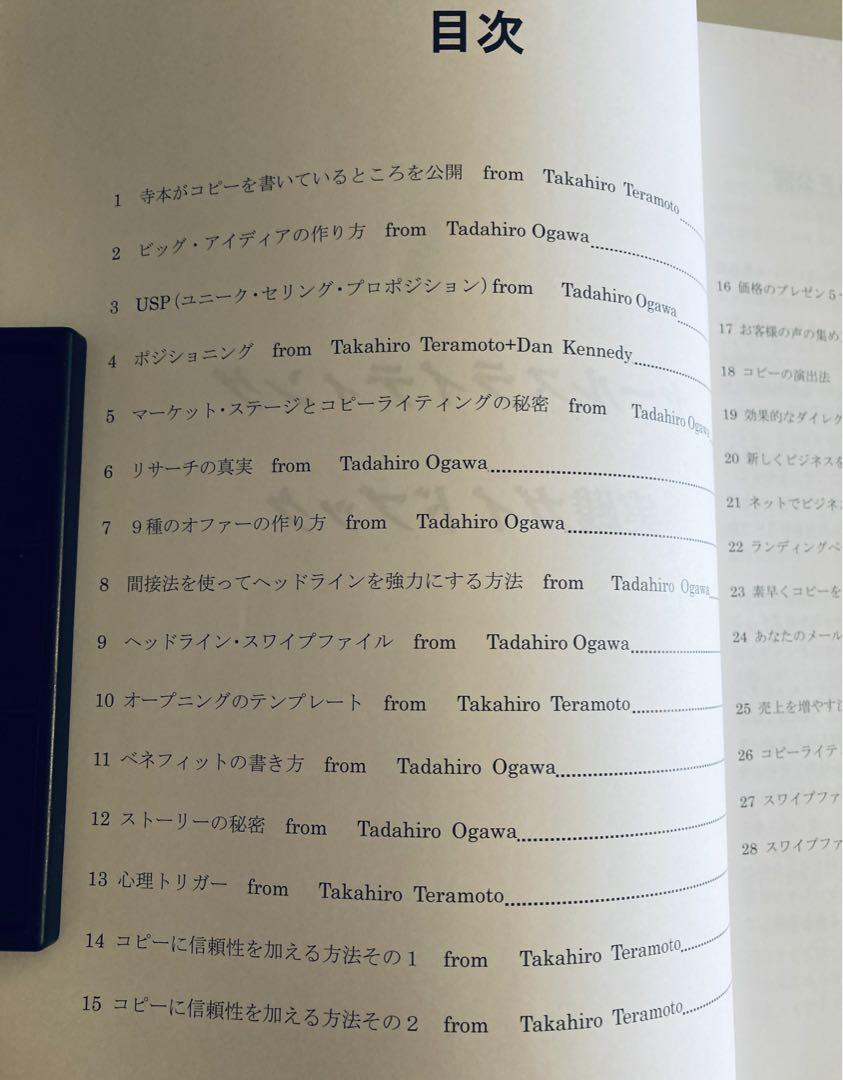 目次
1 寺本がコピーを書いているところを公開 from Takahiro Teramoto
2 ビッグ・アイディアの作り方 from Tadahiro Ogawa
3 USP(ユニーク・セリング・プロポジション)from Tadahiro Ogawa
4 ポジショニング from Takahiro Teramoto+Dan Kennedy
5 マーケット・ステージとコピーライティングの秘密 from Tadahiro Ogawa
6 リサーチの真実 from Tadahiro Ogawa
7 9種のオファーの作り方 from Tadahiro Ogawa
8 間接法を使ってヘッドラインを強力にする方法 from Tadahiro Ogawa
9 ヘッドライン・スワイプファイル from Tadahiro Ogawa
10 オープニングのテンプレート from Takahiro Teramoto
11 ベネフィットの書き方 from Tadahiro Ogawa
12 ストーリーの秘密 from Tadahiro Ogawa
13 心理トリガー from Takahiro Teramoto
14 コピーに信頼性を加える方法その1 from Takahiro Teramoto
15 コピーに信頼性を加える方法その2 from Takahiro Teramoto
16 価格のプレゼン5
17 お客様の声の集め
18 コピーの演出法
19 効果的なダイレク
20 新しくビジネスを
21 ネットでビジネ
22 ランディングペ
23 素早くコピーを
24 あなたのメール
25 売上を増やす
26 コピーライテ
27 スワイプファ
28 スワイプファ